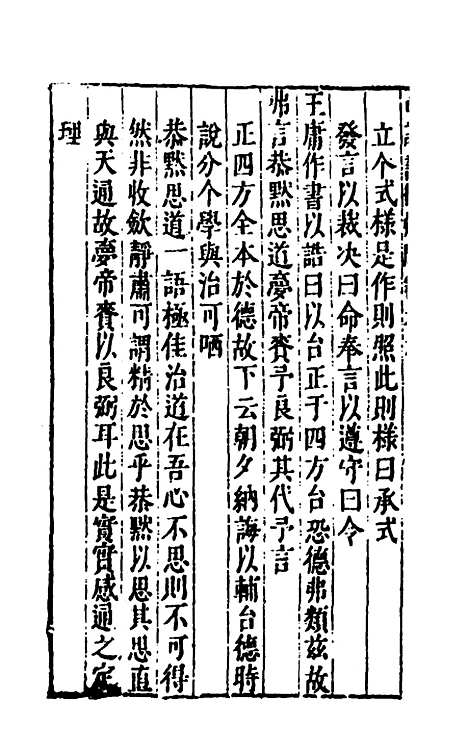 立个式様是作則照此則様曰承式
發言以裁决曰命奉言以遵守曰令
王庸作書以誥曰以台正于四方台恐德弗類兹故
弗言恭黙思道夢帝賚予良弼其代予言
正四方全本於德故下云朝夕納誨以輔台德時
說分个學與治可哂
恭黙思道一語極佳治道在吾心不思則不可得
然非收斂靜肅可謂精於思乎恭黙以思其思直
與天通故夢帝賚以良弼耳此是實實感通之定
理